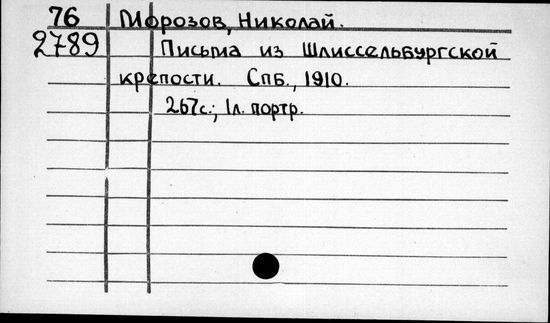 76 Морозов, Николай.
2789 Письма из Шлиссельбургской
крепости. Спб., 1910.
267с.; 1л. портр.